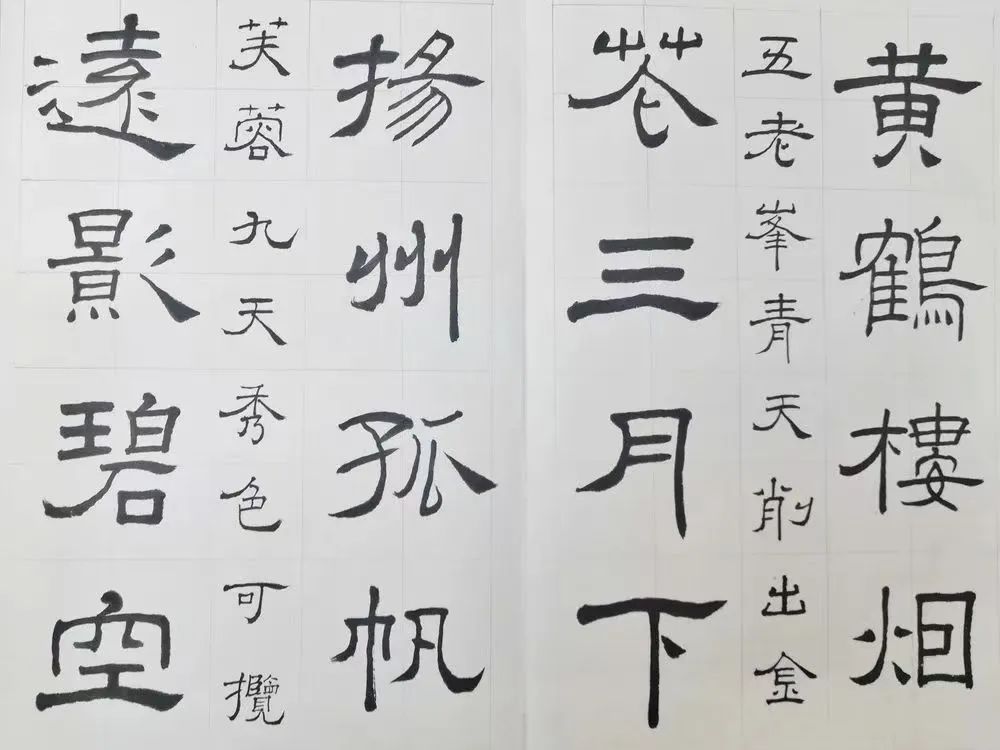 黄鶴樓烟
五老峯青天削出金
花三月下
揚州孤帆
芙蓉九天秀色可攬
遠影碧空